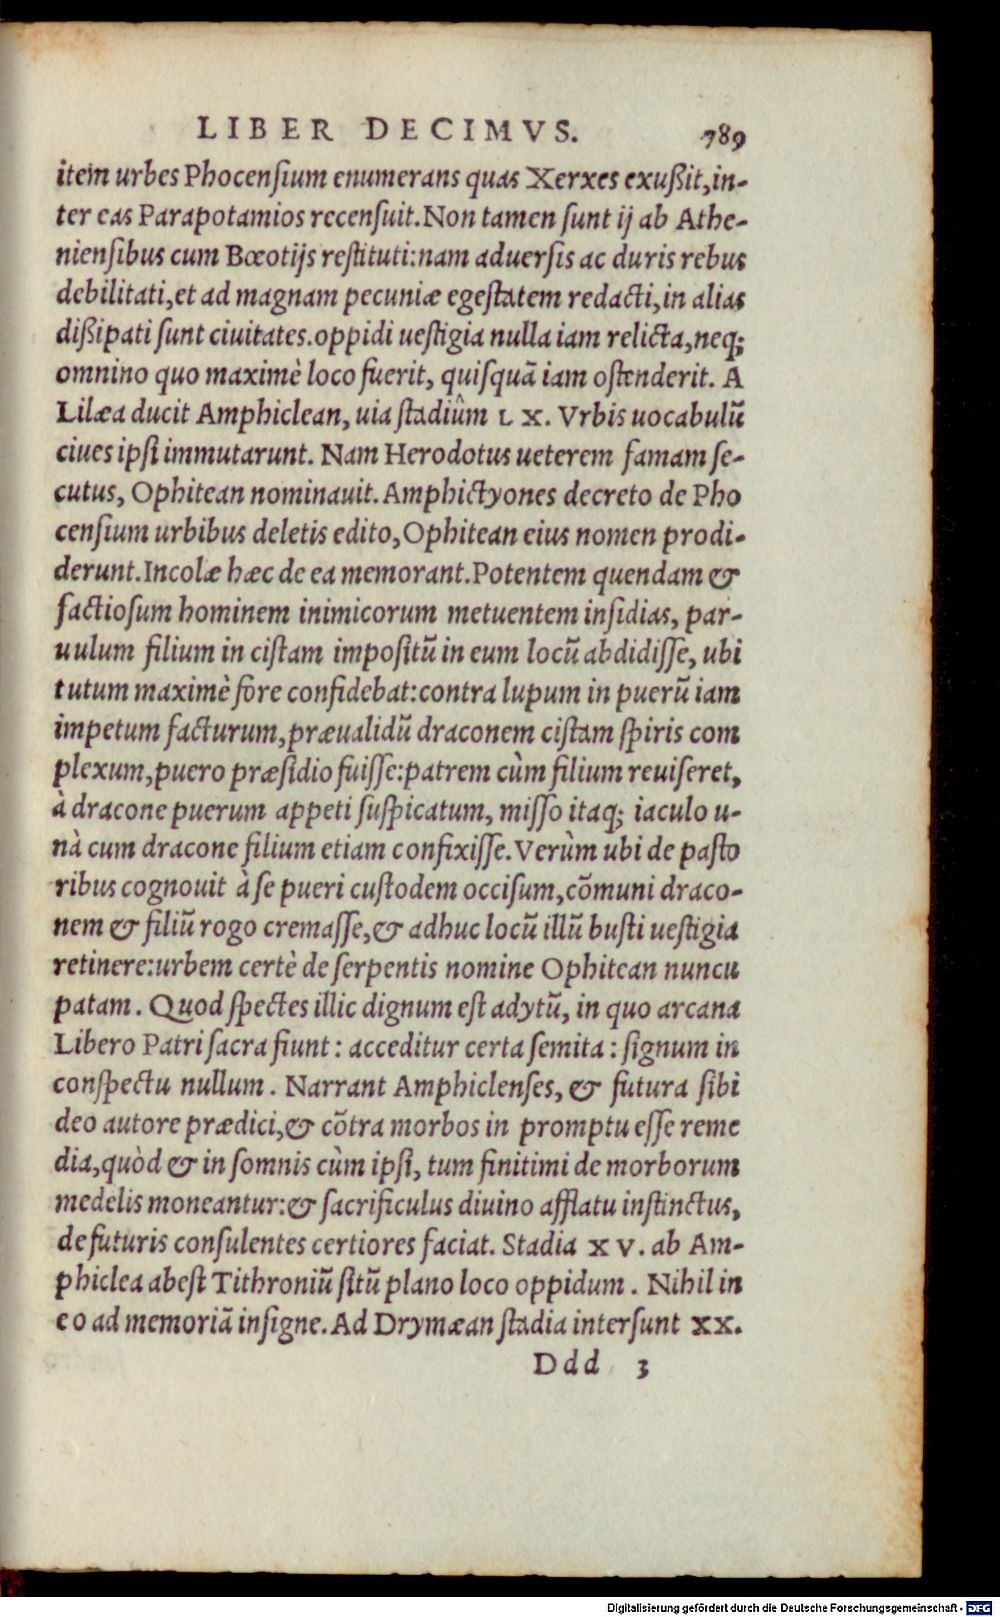 LIBER DECIMVS. 789
item urbes Phocensium enumerans quas Xerxes exußit,in-
ter eas Parapotamios recensuit.Non tamen sunt ij ab Athe-
niensibus cum Bœotijs restituti:nam aduersis ac duris rebus
debilitati,et ad magnam pecuniæ egestatem redacti,in alias
dißipati sunt ciuitates.oppidi uestigia nulla iam relicta,neq;
omnino quo maximè loco fuerit, quisquã iam ostenderit. A
Lilæa ducit Amphiclean, uia stadiûm LX. Vrbis uocabulũ
ciues ipsi immutarunt. Nam Herodotus ueterem famam se-
cutus, Ophitean nominauit. Amphictyones decreto de Pho
censium urbibus deletis edito, Ophitean eius nomen prodi-
derunt.Incolæ hæc de ea memorant.Potentem quendam &
factiosum hominem inimicorum metuentem insidias, par-
uulum filium in cistam impositũ in eum locũ abdidisse, ubi
tutum maximè fore confidebat:contra lupum in puerũ iam
impetum facturum,præualidũ draconem cistam spiris com
plexum,puero præsidio fuisse:patrem cùm filium reuiseret,
à dracone puerum appeti suspicatum, misso itaq; iaculo u-
nà cum dracone filium etiam confixisse.Verùm ubi de pasto
ribus cognouit à se pueri custodem occisum,cõmuni draco-
nem & filiũ rogo cremasse,& adhuc locũ illũ busti uestigia
retinere:urbem certè de serpentis nomine Ophitean nuncu
patam. Quod spectes illic dignum est adytũ, in quo arcana
Libero Patri sacra fiunt : acceditur certa semita : signum in
conspectu nullum. Narrant Amphiclenses, & futura sibi
deo autore prædici,& cõtra morbos in promptu esse reme
dia,quòd & in somnis cùm ipsi, tum finitimi de morborum
medelis moneantur:& sacrificulus diuino afflatu instinctus,
de futuris consulentes certiores faciat. Stadia XV. ab Am-
phiclea abest Tithroniũ sitũ plano loco oppidum. Nihil in
eo ad memoriã insigne.Ad Drymæan stadia intersunt XX.
Ddd 3
Digitalisierung gefördert durch die Deutsche Forschungsgemeinschaft - DFG